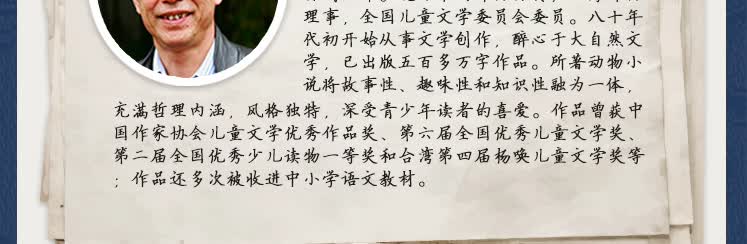 理事，全国儿童文学委员会委员。八十年
代初开始从事文学创作，醉心于大自然文
学，已出版五百多万字作品。所著动物小
说将故事性、趣味性和知识性融为一体，
充满哲理内涵，风格独特，深受青少年读者的喜爱。作品曾获中
国作家协会儿童文学优秀作品奖、第六届全国优秀儿童文学奖、
第二届全国优秀少儿读物一等奖和台湾第四届杨唤儿童文学奖等
；作品还多次被收进中小学语文教材。